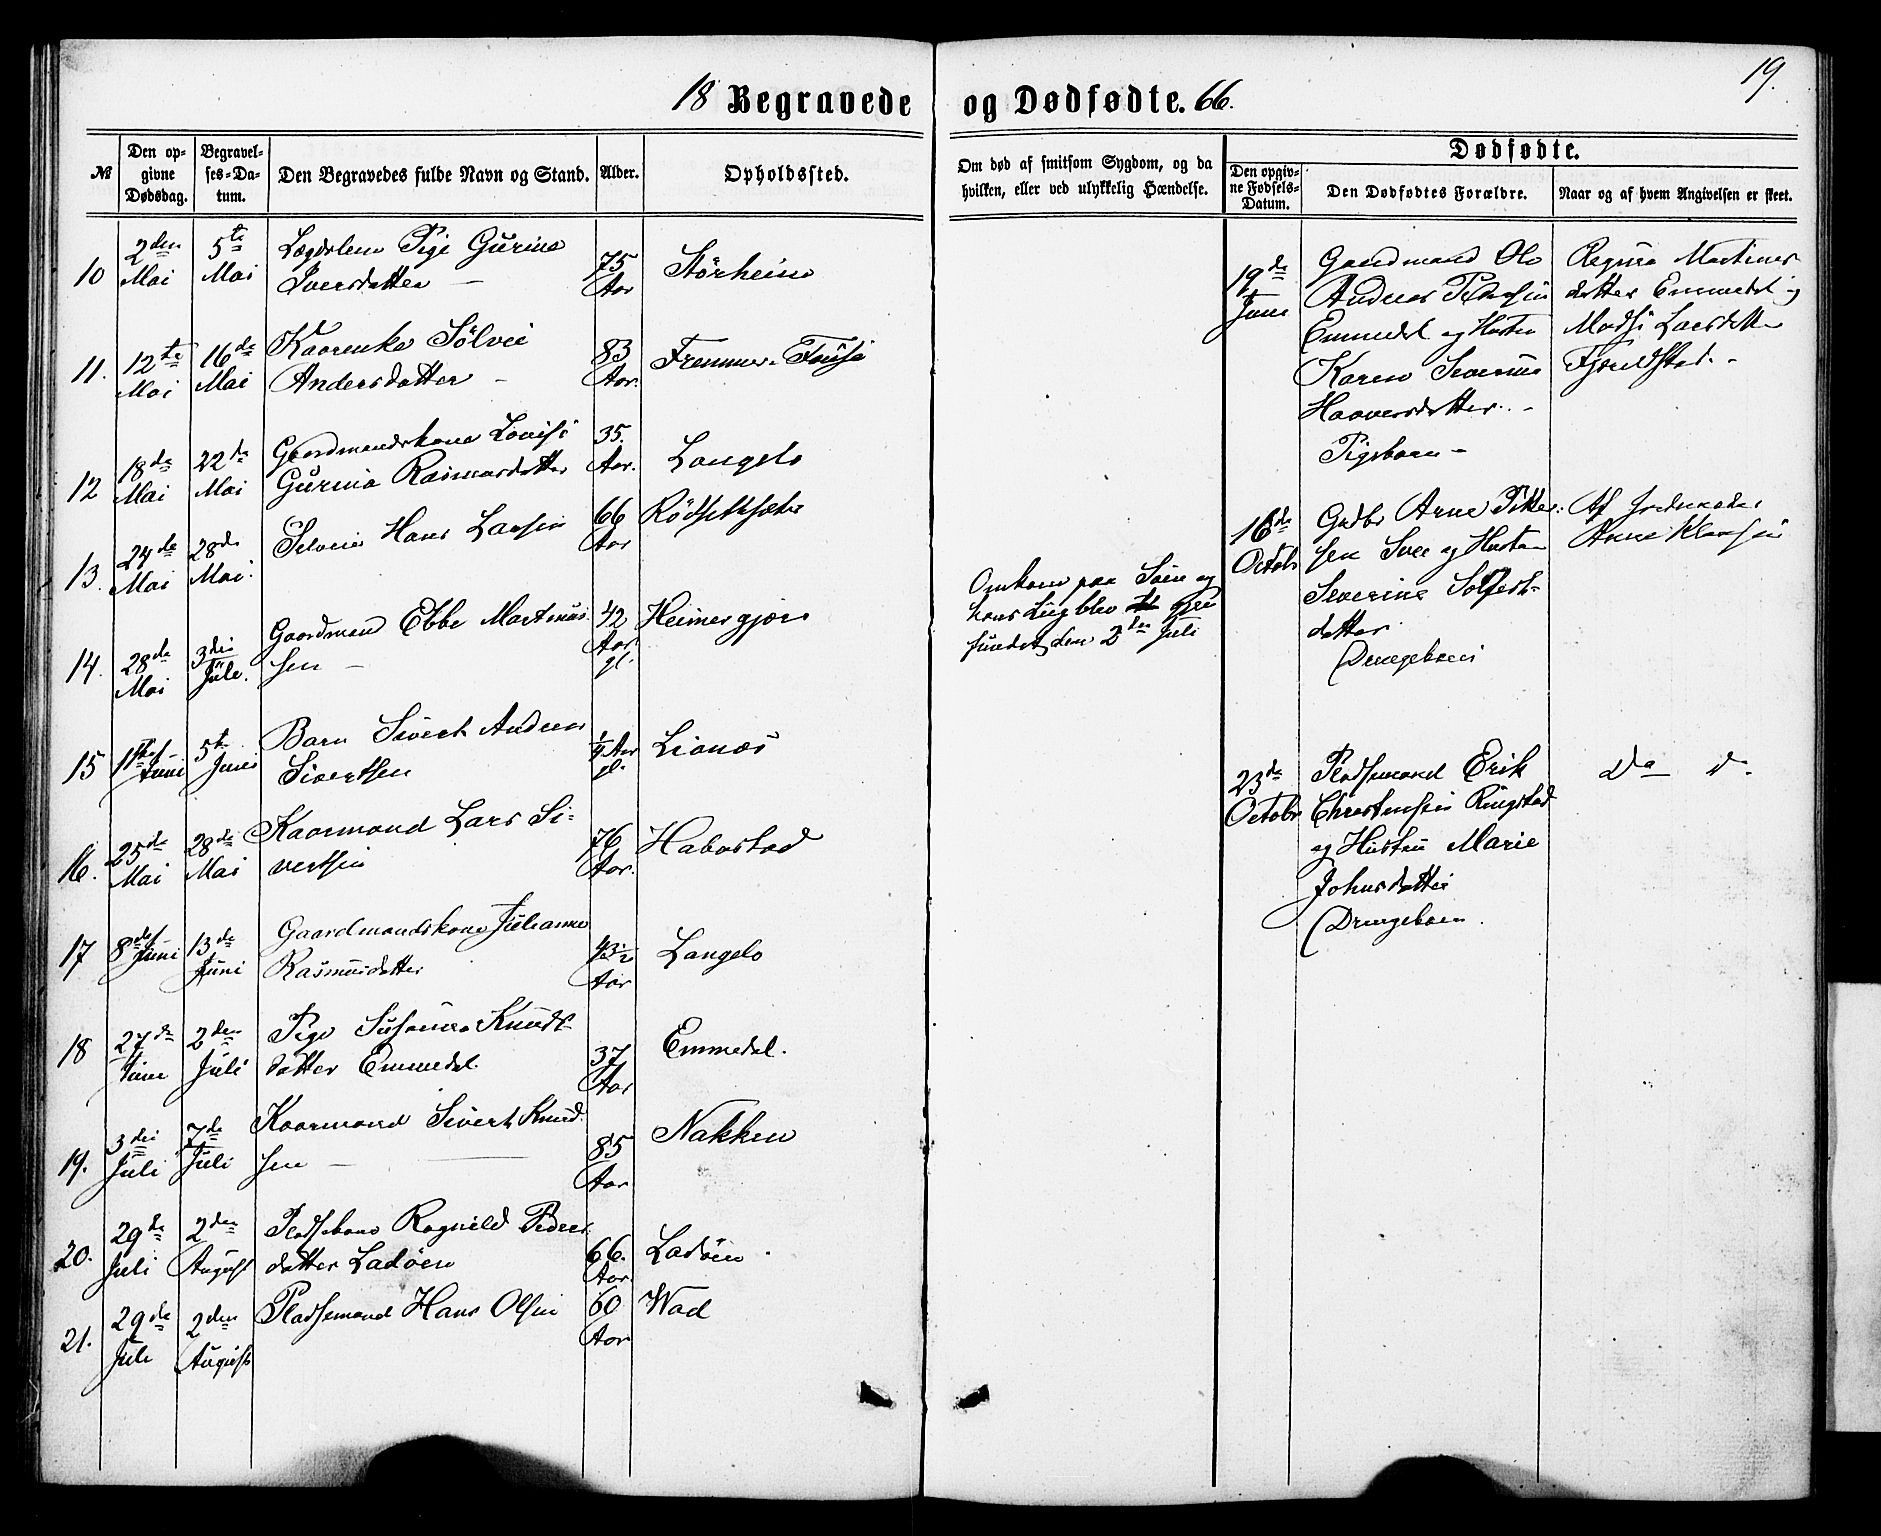 18 Begravede og Dødfødte. 66.
19.
№
Den op-
givne
Dødsdag.
Begravel-
ses-Da-
tum.
Den Begravedes fulde Navn og Stand.
Alder.
Opholdssted.
Om død af smitsom Sygdom, og da
hvilken, eller ved ulykkelig Hændelse.
Dødfødte.
Den opgiv-
ne Fødsels-
Datum.
Den Dødfødtes Forældre.
Naar og af hvem Angivelsen er skeet.
10
2den
Mai
5te
Mai
Lægdslem Pige Gurine
Iversdatter –
75
Aar
Størheim
11.
12te
Mai
16de
Mai
Kaarenke Sølvie
Andersdatter –
83
Aar.
Fremmer-
12
18de
Mai
22de
Mai
Gaardmandskone Lovise
Gurina Rasmusdatter
35.
Aar.
Langelo
13.
24de
Mai
28de
Mai.
Hans Larsen
66
Aar
Rødsetsæter
14.
28de
Mai
3die
Juli.
Gaardmand Ebbe Martinus
sen –
42
Aar.
gl.
Heimergjære
Omkom paa Søen og
hans Liig blev
fundet den 2den Juli
15
Juni
5te
Juni
Barn Sivert Andreas
Sivertsen
1/4 Aar
gl.
Lianæs
16.
25de
Mai
28de
Mai
Kaarmand Lars Si-
vertsen
76
Aar.
Habostad
17
8de Juni
13de
Juni
Gaardmandskone Julianne
Rasmusdatter
43 1/2
Aar
Langelo
18
27de
Juni
2den
Juli
Pige Susanna Knuds-
datter Emmedal.
37
Aar
Emmedal.
19.
3die
Juli
7de
Juli
Kaarmand Sivert Knud
sen –
85
Aar
Nakken
20.
29de
Juli
2den
August
Pladsekone Ragnild Peders
datter Ladøen
66.
Aar.
Ladøen
21.
29de
Juli
2den
August
Pladsemand Hans Olsen
60
Aar
Wad
19de
Juni
Gaardmand Ole
Andreas Pedersen
Emmedal og Hustru
Karen Severine
Haaversdatter. –
Pigebarn –
Regina Martinus
datter Emmedal og
Madsi Larsdatter
Fjeldstad. –
16de
Octobr
Gadbr Arne Petter-
sen og Hustru
Severine
datter
Drengebarn
Af Jordemoder
Anne Klausen
23de
Octobr
Pladsemand Erik
Christensen Ringstad
og Hustru Marie
Johnsdatter
Drengebarn.
Do Do